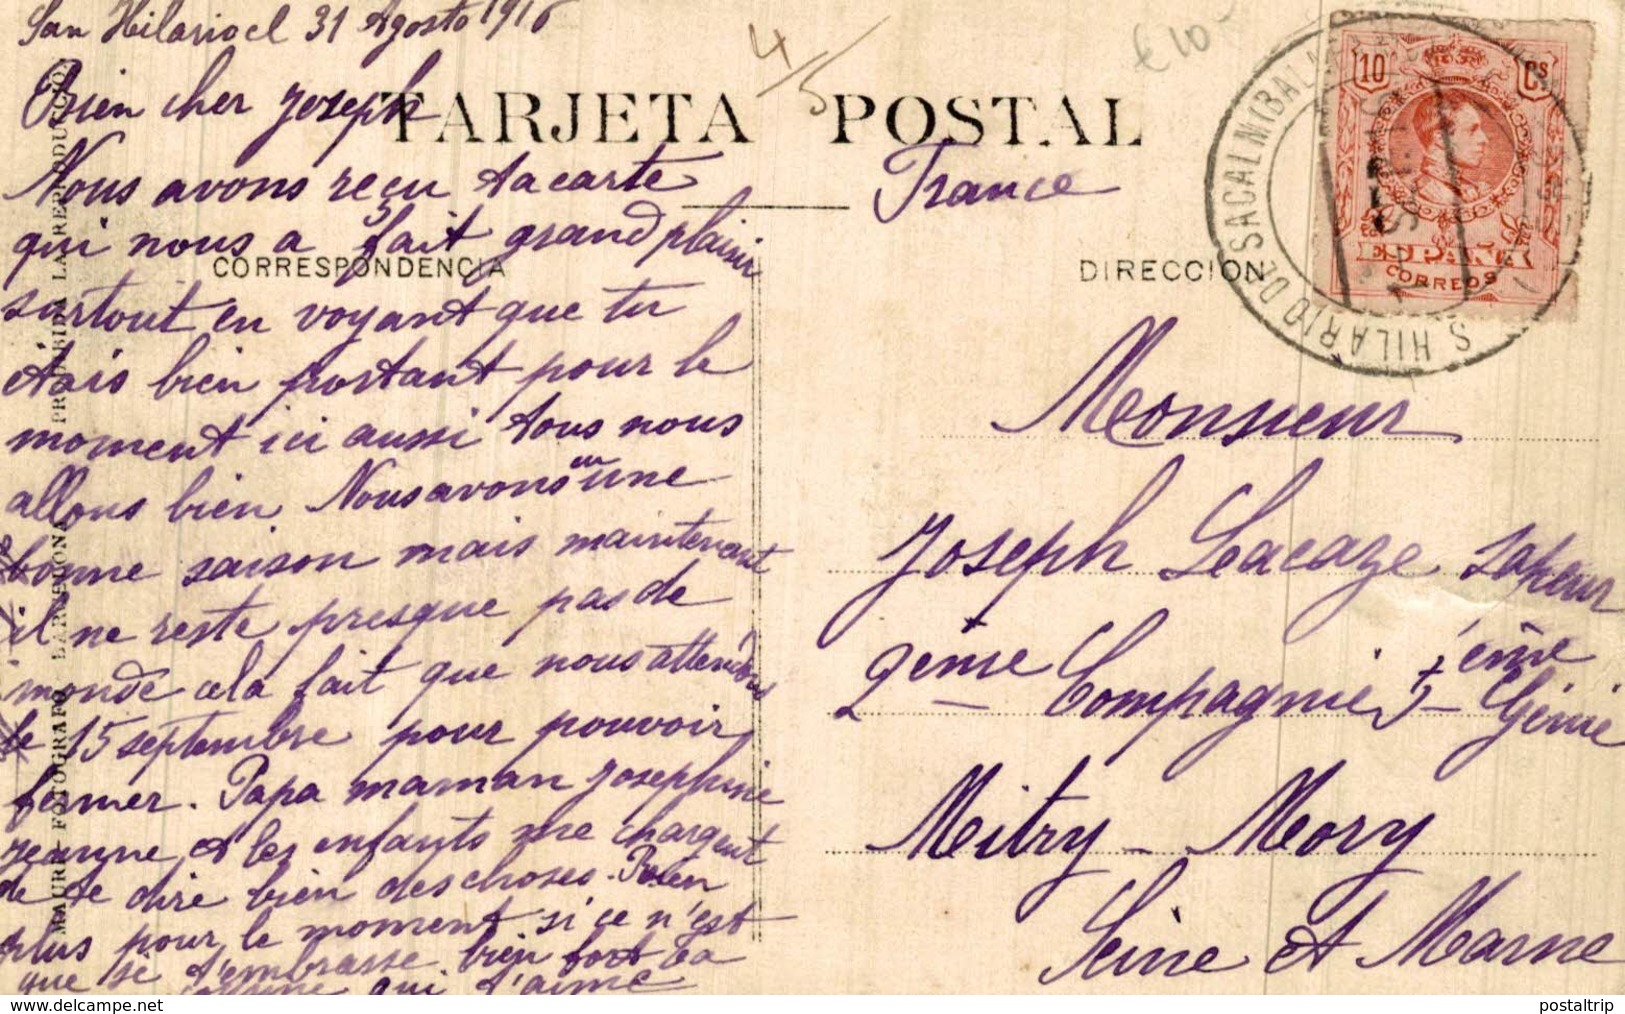 San Hilario el 31 Agosto 1916
Bien cher Joseph
Nous avons reçu ta carte
qui nous a fait grand plaisir
surtout en voyant que tu
étais bien portant pour le
moment ici aussi tous nous
allons bien. Nous avons eu une
bonne saison mais maintenant
il ne reste presque pas de
monde cela fait que nous attendons
le 15 septembre pour pouvoir
fermer. Papa maman Josephine
jeanne et les enfants me chargent
de te dire bien des choses. Rien
plus pour le moment si ce n'est
que je t'embrasse bien fort ta
qui t'aime
4/5
€ 10-
TARJETA POSTAL
CORRESPONDENCIA
DIRECCION
MAURI FOTOGRAFO BARCELONA PROHIBIDA LA REPRODUCCION
10 Cs
ESPAÑA
CORREOS
S. HILARIO DE SACALM
France
Monsieur
Joseph Lacaze Sapeur
2ème Compagnie 5ème Génie
Mitry - Mory
Seine et Marne
www.delcampe.net
postaltrip